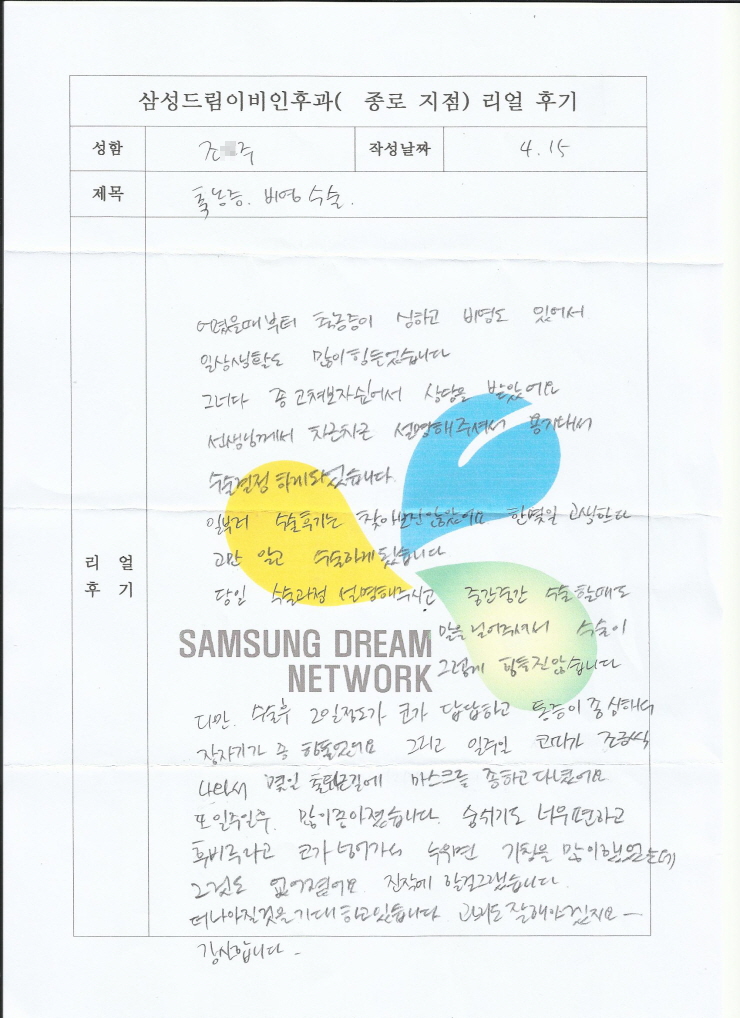 삼성드림이비인후과( 종로 지점) 리얼 후기
성함 조 주 작성날짜 4.15
제목 축농증. 비염 수술.
리 얼
후 기
어렸을때부터 축농증이 심하고 비염도 있어서
일상생활도 많이 힘들었습니다
그러다 좀 고쳐보자싶어서 상담을 받았어요
선생님께서 차근차근 설명해주셔서 용기내서
수술결정 하게되었습니다.
일부러 수술후기는 찾아보진않았어요 한몇일 고생한다
고만 알고 수술하게됬습니다
당일 수술과정 설명해주시고 중간중간 수술할때도
말을 걸어주셔서 수술이
그렇게 힘들진않습니다
SAMSUNG DREAM
NETWORK
다만. 수술후 2일정도가 코가 답답하고 통증이 좀 심해서
잠자기가 좀 힘들었어요 그리고 일주일 코피가 조금씩
나와서 몇일 출퇴근길에 마스크를 좀하고다녔어요
또 일주일후. 많이곤아졌습니다. 숨쉬기도 너무편하고
후비루라고 코가 넘어가서 누우면 기침을 많이했었는데
그것도 없어졌어요. 진작에 할걸그랬습니다.
더나아질것을 기대하고있습니다. 관리도 잘해야겠지요 —
감사합니다 -